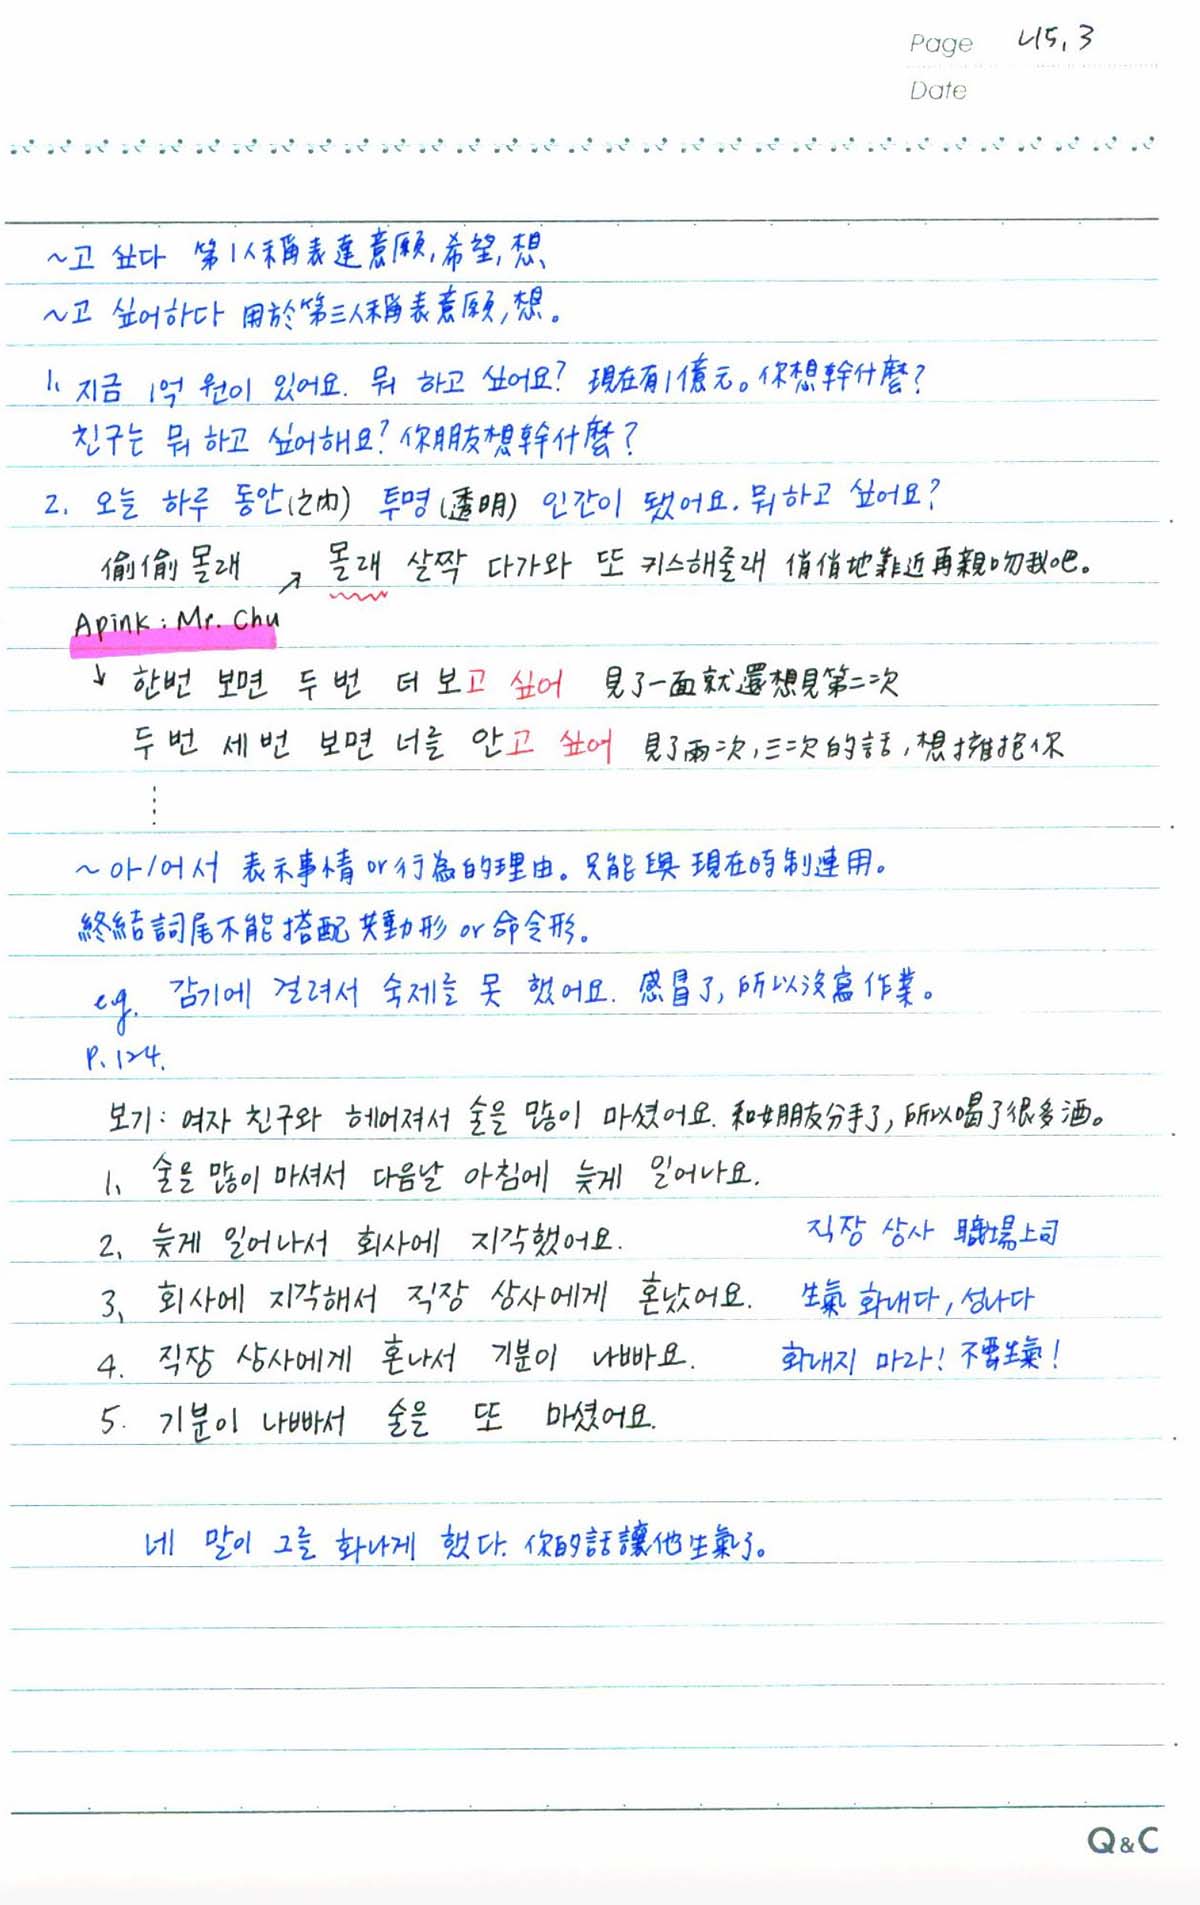 Page 45.3
Date
~고 싶다 第1人稱表達意願,希望,想
~고 싶어하다 用於第三人稱表意願,想。
1. 지금 1억 원이 있어요. 뭐 하고 싶어요? 現在有1億元。你想幹什麼?
친구는 뭐 하고 싶어해요? 你朋友想幹什麼?
2. 오늘 하루 동안(之內) 투명(透明) 인간이 됐어요. 뭐하고 싶어요?
偷偷 몰래 ↗ 몰래 살짝 다가와 또 키스해줄래 俏俏地靠近再親吻我吧。
Apink : Mr. Chu
↓ 한번 보면 두 번 더 보고 싶어 見了一面就還想見第二次
두 번 세 번 보면 너를 안고 싶어 見了兩次,三次的話,想擁抱你
~아/어서 表示事情or行為的理由。只能與現在時制連用。
終結詞尾不能搭配共動形 or 命令形。
eg. 감기에 걸려서 숙제를 못 했어요. 感冒了,所以沒寫作業。
P.124.
보기: 여자 친구와 헤어져서 술을 많이 마셨어요. 和女朋友分手了,所以喝了很多酒。
1. 술을 많이 마셔서 다음날 아침에 늦게 일어나요.
2. 늦게 일어나서 회사에 지각했어요. 직장 상사 職場上司
3. 회사에 지각해서 직장 상사에게 혼났어요. 生氣 화내다, 성나다
4. 직장 상사에게 혼나서 기분이 나빠요. 화내지 마라! 不要生氣!
5. 기분이 나빠서 술을 또 마셨어요.
네 말이 그를 화나게 했다. 你的話讓他生氣了。
Q&C